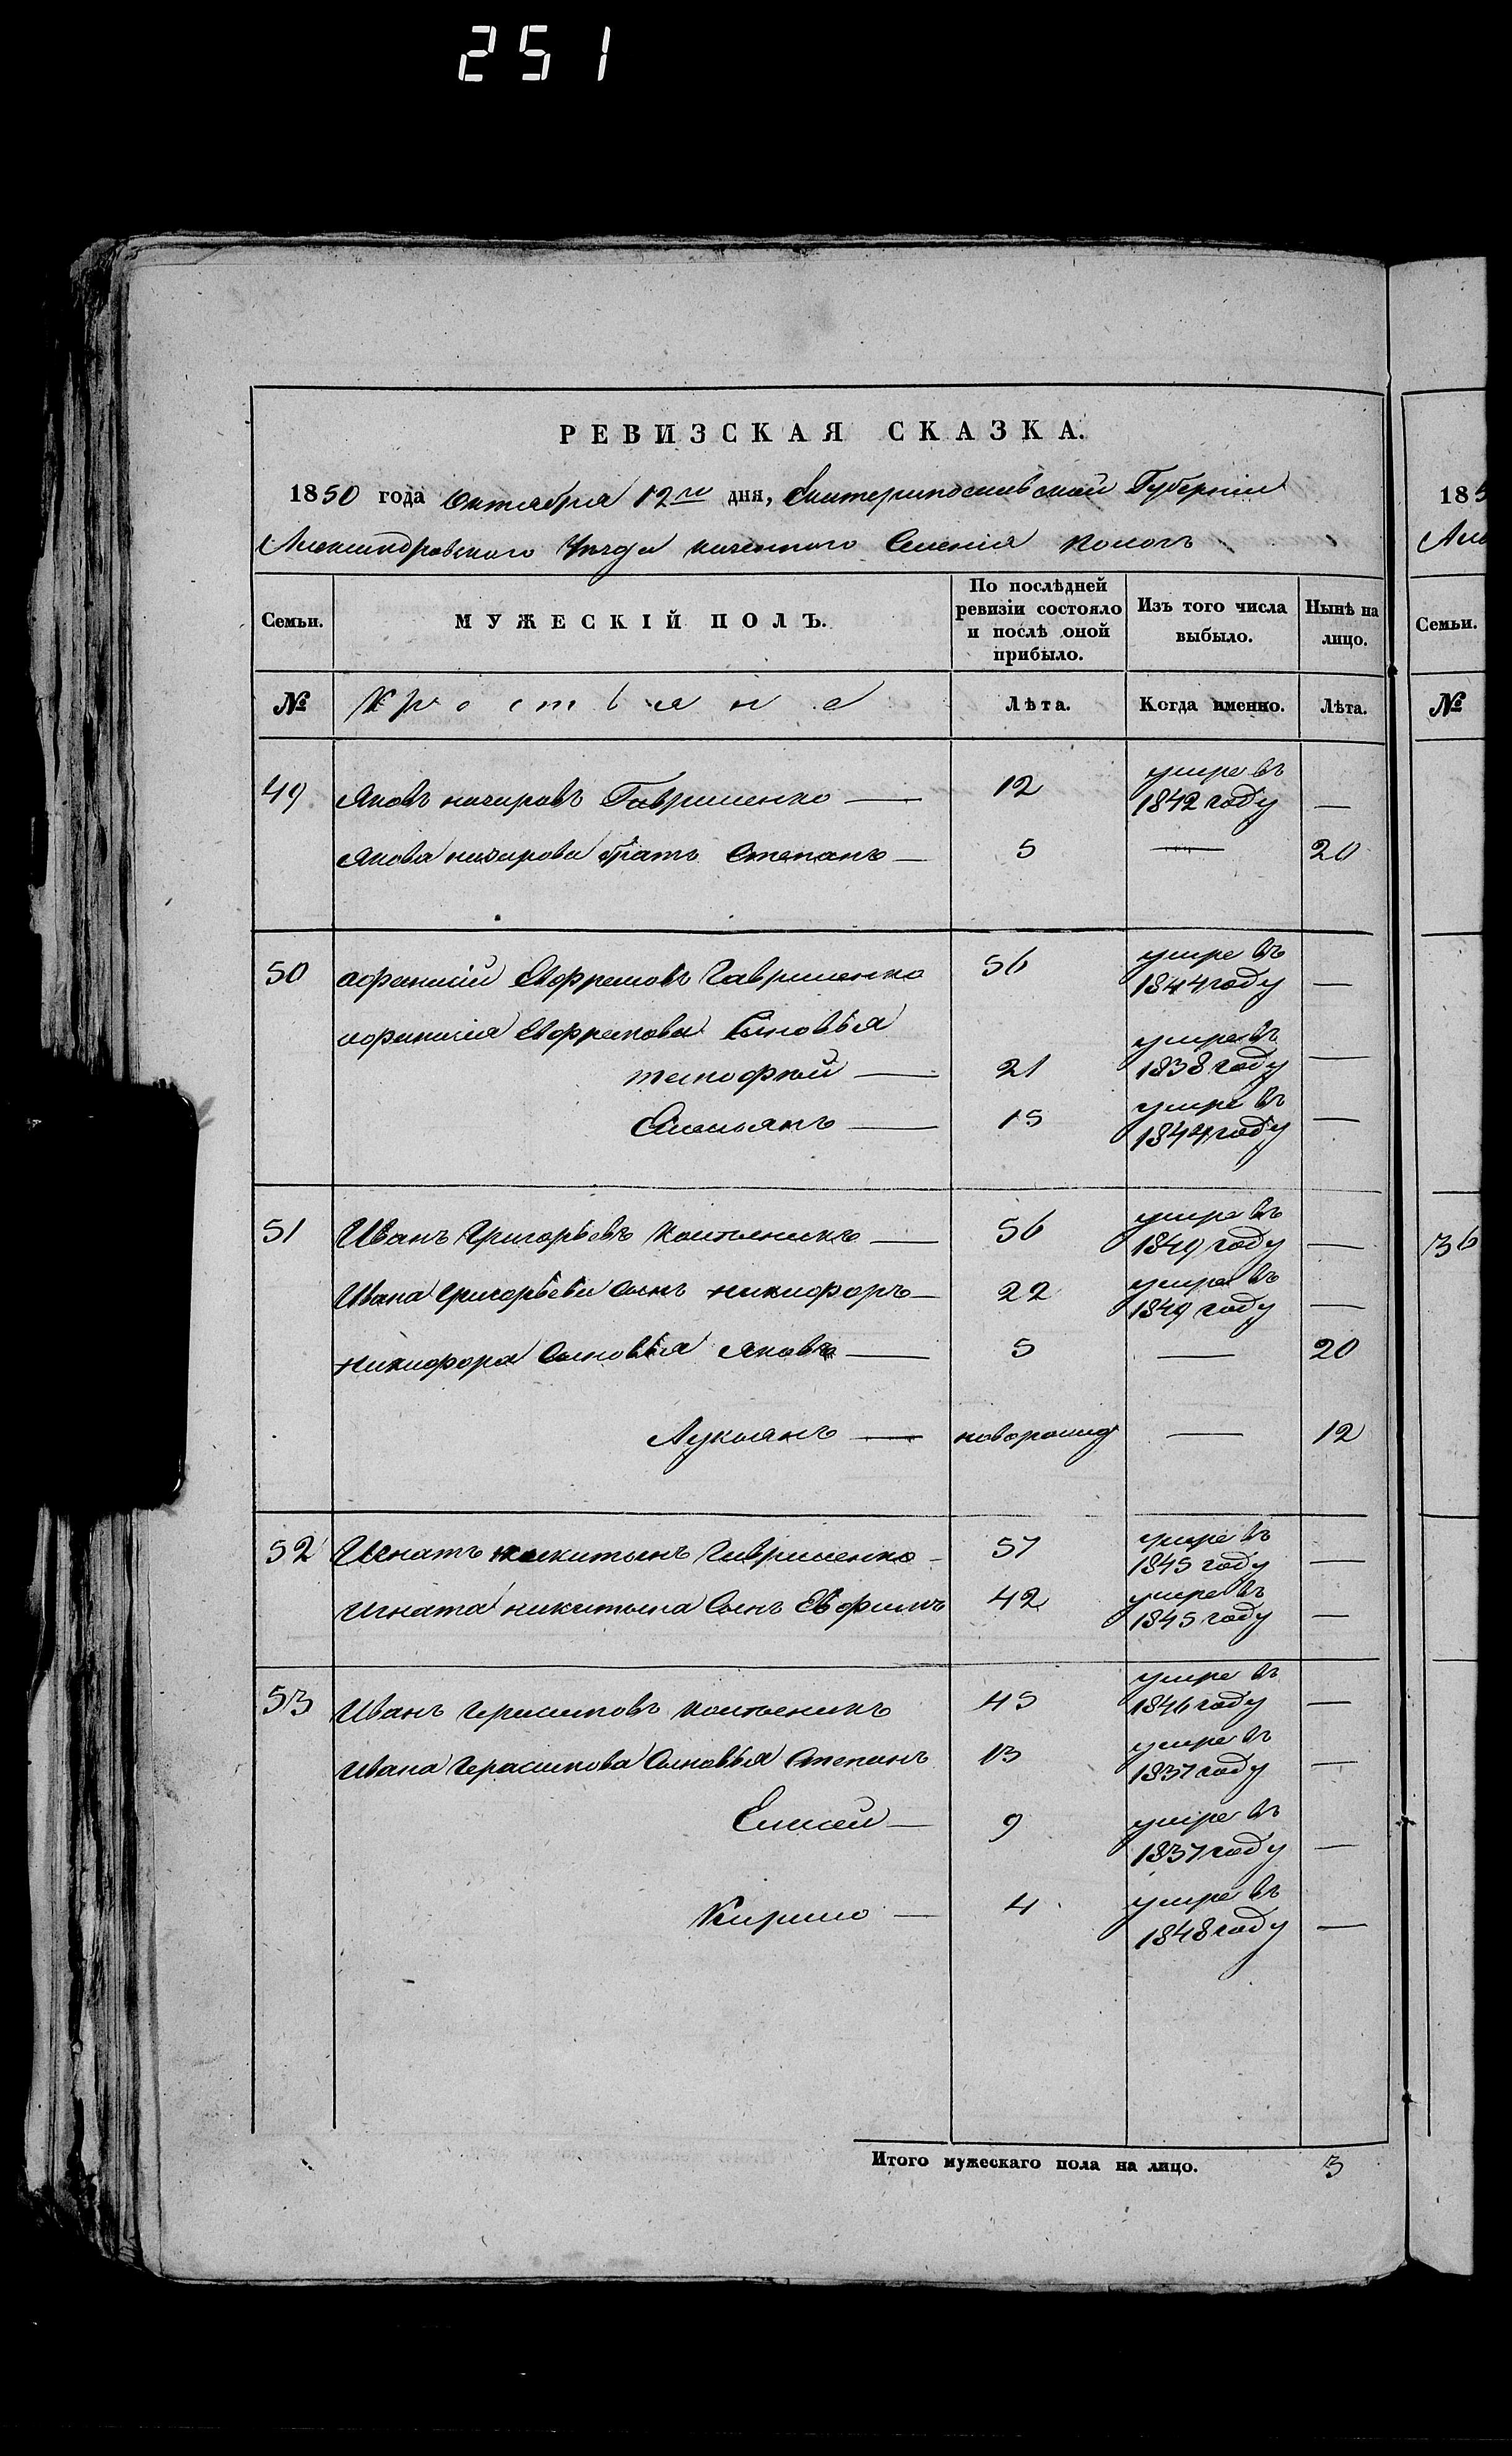 251
РЕВИЗСКАЯ СКАЗКА.
1850 года Октября 12го дня, Екатеринославской Губернiи
Александровского Уезда казенного Селенiя
Семьи. МУЖЕСКIЙ ПОЛЪ. По послѣдней ревизiи состояло и послѣ оной прибыло. Изъ того числа выбыло. Нынѣ на лицо.
№ Крестьяне Лѣта. Когда именно. Лѣта.
49 Яковъ Гавриленко — 12 умре въ 1842 году —
Якова братъ Степанъ — 5 — 20
50 афанасiй Евфремовъ Гавриленко 56 умре въ 1844 году —
афанасiя Евфремова Сыновья
тимофѣй — 21 умре въ 1838 году —
Емельянъ — 15 умре въ 1844 году —
51 Иванъ Григорьевъ — 56 умре въ 1849 году —
Ивана Григорьева Сынъ никифоръ — 22 умре въ 1849 году —
никифора Сыновья Яковъ — 5 — 20
Лукьянъ — новорожд — 12
52 Игнатъ никитинъ Гавриленко - 57 умре въ 1845 году —
Игната никитина Сынъ Евфимъ 42 умре въ 1845 году —
53 Иванъ Герасимовъ 45 умре въ 1846 году —
Ивана Герасимова Сыновья Степанъ 13 умре въ 1837 году —
Елисей — 9 умре въ 1837 году —
Кирило — 4 умре въ 1848 году —
Итого мужескаго пола на лицо. 3
185
Але
Семьи.
№
36